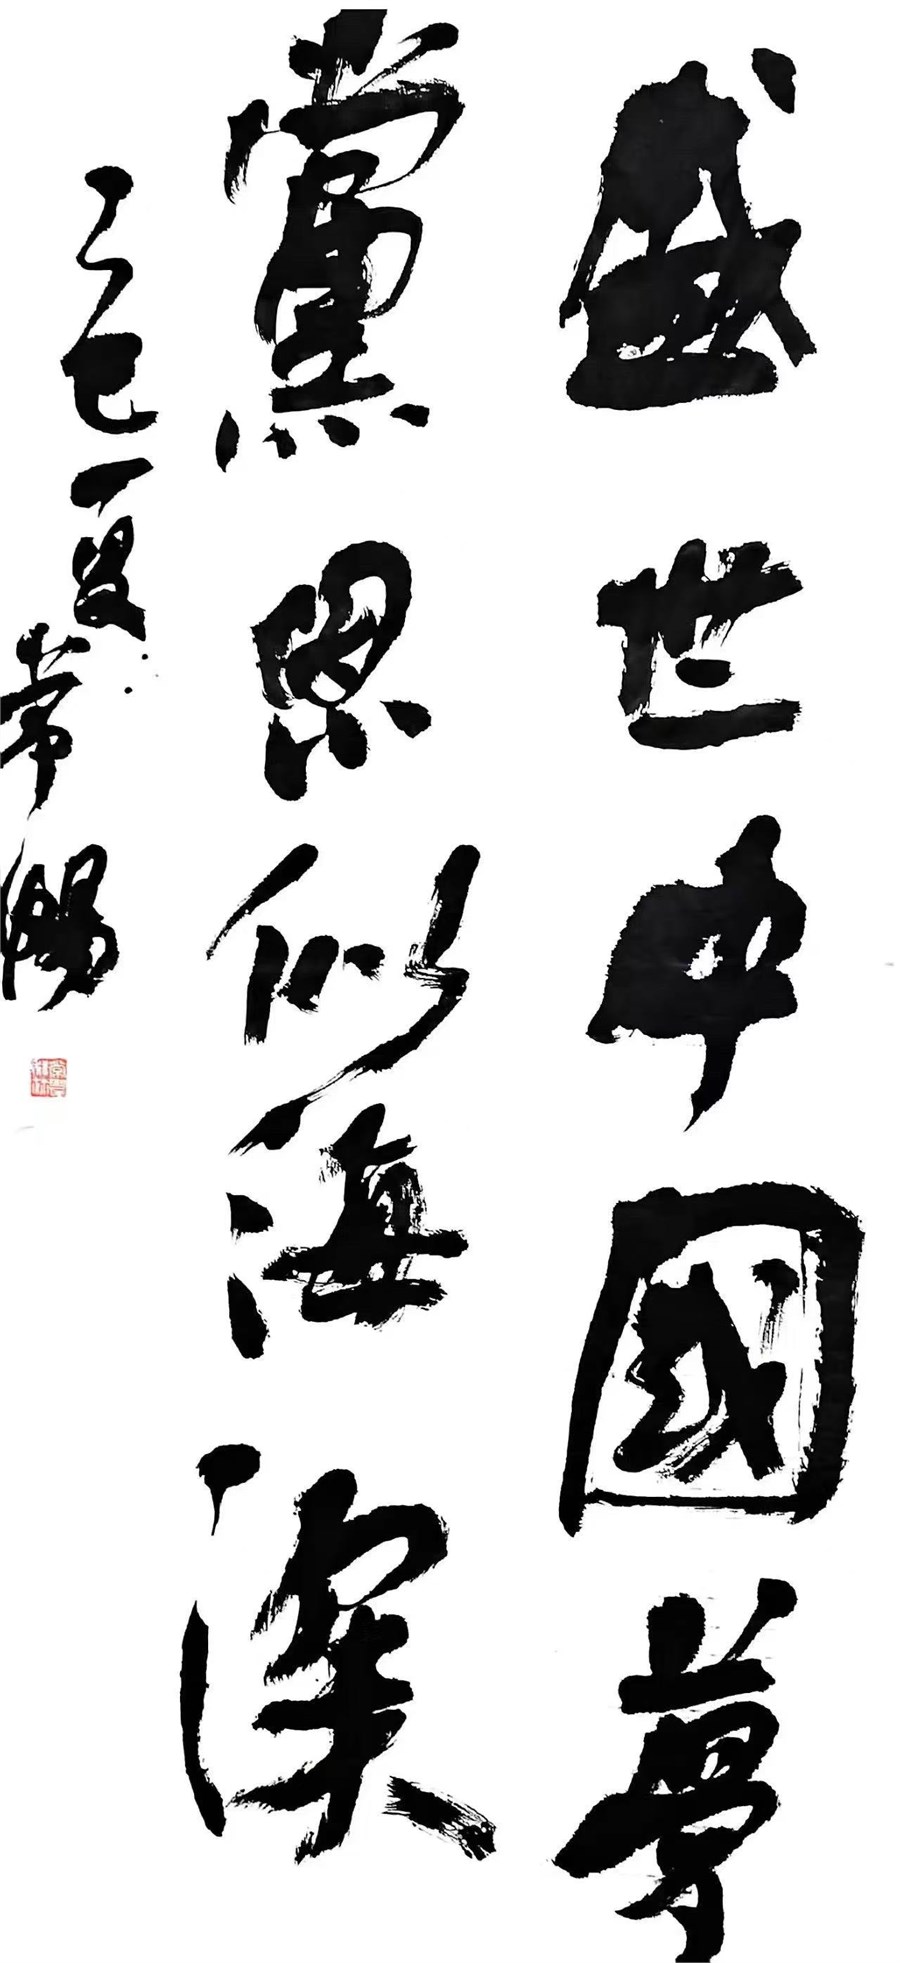 盛世中國夢
黨恩似海深
乙巳夏常鍚